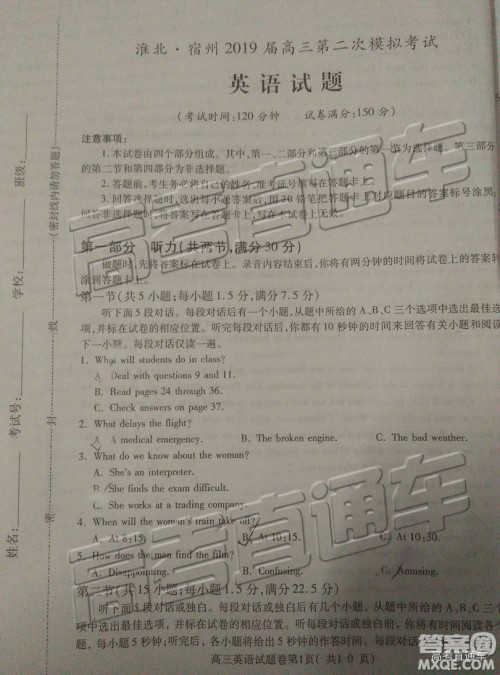 淮北·宿州2019届高三第二次模拟考试
英语试题
(考试时间:120分钟 试卷满分:150分)
注意事项:
1.本试卷由四个部分组成。其中,第一、二部分和第三部分的第一节为选择题。第三部分
的第二节和第四部分为非选择题。
2.答题前,考生务必将自己的姓名、准考证号填写在答题卡上。
3.回答选择题时,选出答案后,用2B铅笔把答题卡上对应题目的答案标号涂黑,
回答非选择题时,将答案写在答题卡上,写在本试卷上无效。
第一部分 听力(共两节,满分30分)
做题时,先将答案标在试卷上。录音内容结束后,你将有两分钟的时间将试卷上的答案
涂到答题卡上。
第一节(共5小题;每小题1.5分,满分7.5分)
听下面5段对话。每段对话后有一个小题,从题中所给的A、B、C三个选项中选出最佳选
项,并标在试卷的相应位置。听完每段对话后,你都有10秒钟的时间来回答有关小题和阅读
下一小题。每段对话仅读一遍。
1. What will students do in class?
A. Deal with questions 9 and 11.
B. Read pages 24 through 36.
C. Check answers on page 264.
2. What delays the flight?
A. A medical emergency. B. The broken engine. C. The bad weather.
3. What do we know about the woman?
A. She's an interpreter.
B. She finds the exam difficult.
C. She works at a trading company.
4. When will the woman's train take off?
A. At 8:15. B. At 10:15. C. At 10:30.
5. How does the man find the film?
A. Disappointing. B. Confusing. C. Amusing.
第二节(共15小题;每小题1.5分,满分22.5分)
听下面5段对话或独白。每段对话或独白后有几个小题,从题中所给的A、B、C三个选项
中选出最佳选项,并标在试卷的相应位置。听每段对话或独白前,你将有时间阅读各个小
题,每小题5秒钟;听完后,各小题将给出5秒钟的作答时间。每段对话或独白读两遍。
高三英语试题卷第1页(共10页)
班级:
学校:
考试号:
姓名:
(密封线内请勿答题)
密 封 线
高考直通车
高考直通车
高考直通车
答案圈
MXQE.COM